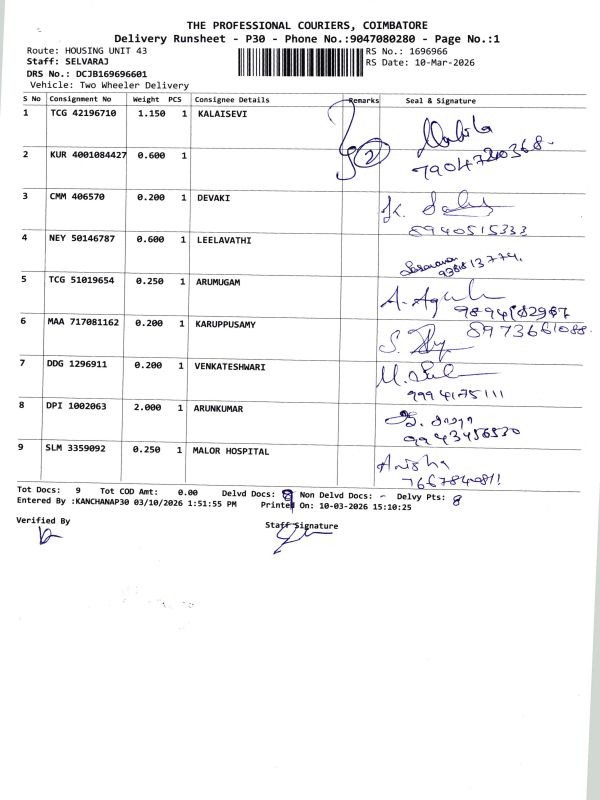 THE PROFESSIONAL COURIERS, COIMBATORE
Delivery Runsheet - P30 - Phone No.:9047080280 - Page No.:1
Route: HOUSING UNIT 43 RS No.: 1696966
Staff: SELVARAJ RS Date: 10-Mar-2026
DRS No.: DCJB169696601
Vehicle: Two Wheeler Delivery
S No Consignment No Weight PCS Consignee Details Remarks Seal & Signature
1 TCG 42196710 1.150 1 KALAISEVI
2 KUR 4001084427 0.600 1 2
3 CMM 406570 0.200 1 DEVAKI
8940515333
4 NEY 50146787 0.600 1 LEELAVATHI
5 TCG 51019654 0.250 1 ARUMUGAM
6 MAA 717081162 0.200 1 KARUPPUSAMY
8973661088.
7 DDG 1296911 0.200 1 VENKATESHWARI
9994175111
8 DPI 1002063 2.000 1 ARUNKUMAR
9943456530
9 SLM 3359092 0.250 1 MALOR HOSPITAL
Anisha
Tot Docs: 9 Tot COD Amt: 0.00 Delvd Docs: Non Delvd Docs: - Delvy Pts: 8
Entered By :KANCHANAP30 03/10/2026 1:51:55 PM Printed On: 10-03-2026 15:10:25
Verified By Staff Signature